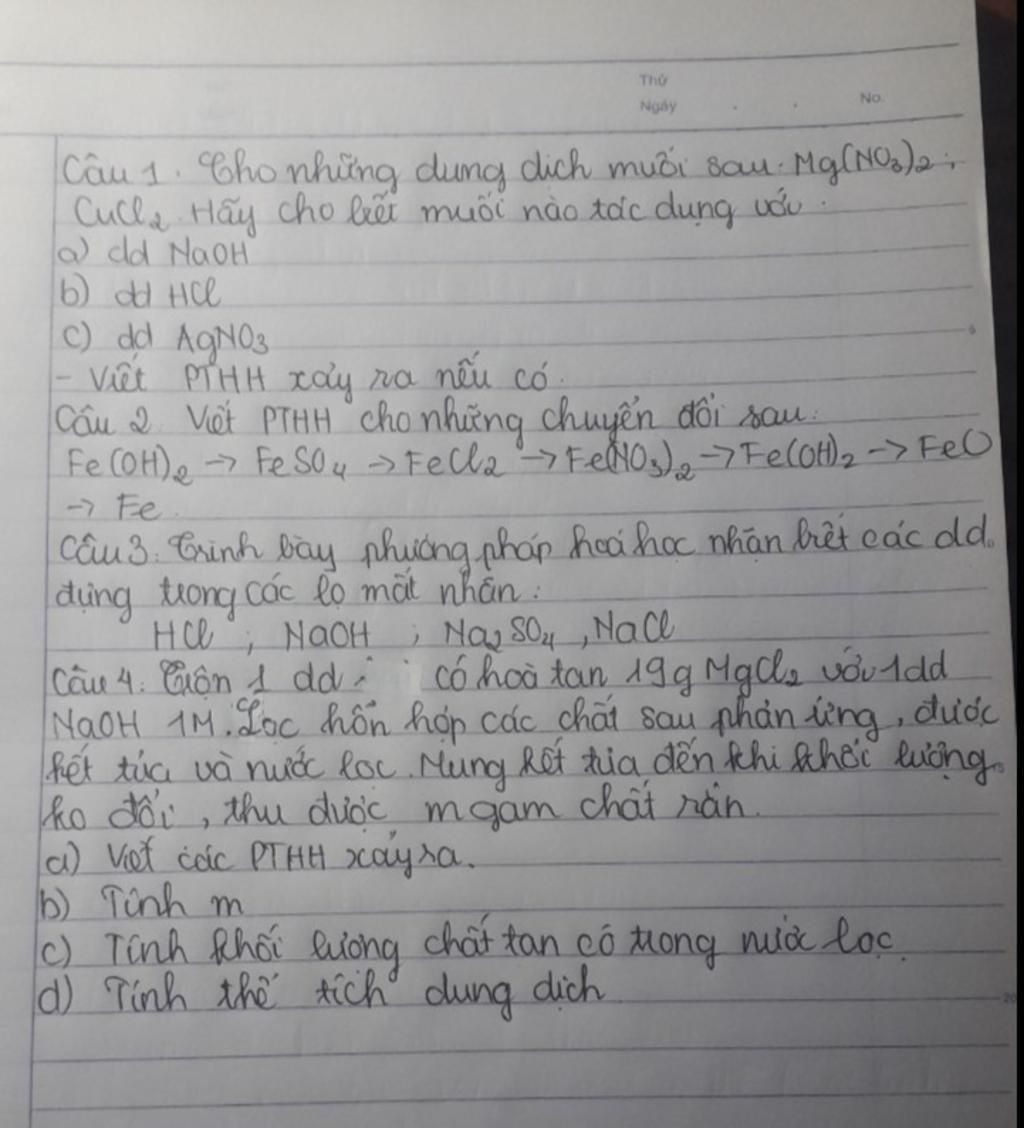 Thứ
Ngày . . No.
Câu 1. Cho những dung dịch muối sau: Mg(NO3)2;
CuCl2. Hãy cho biết muối nào tác dụng với:
a) dd NaOH
b) dd HCl
c) dd AgNO3
- Viết PTHH xảy ra nếu có.
Câu 2. Viết PTHH cho những chuyển đổi sau:
Fe(OH)2 -> FeSO4 -> FeCl2 -> Fe(NO3)2 -> Fe(OH)2 -> FeO
-> Fe.
Câu 3: Trình bày phương pháp hoá học nhận biết các dd
đựng trong các lọ mất nhãn:
HCl ; NaOH ; Na2SO4 , NaCl
Câu 4: Trộn 1 dd có hoà tan 19g MgCl2 với 1dd
NaOH 1M. Lọc hỗn hợp các chất sau phản ứng, được
kết tủa và nước lọc. Nung kết tủa đến khi khối lượng
ko đổi, thu được m gam chất rắn.
a) Viết các PTHH xảy ra.
b) Tính m
c) Tính khối lượng chất tan có trong nước lọc.
d) Tính thể tích dung dịch